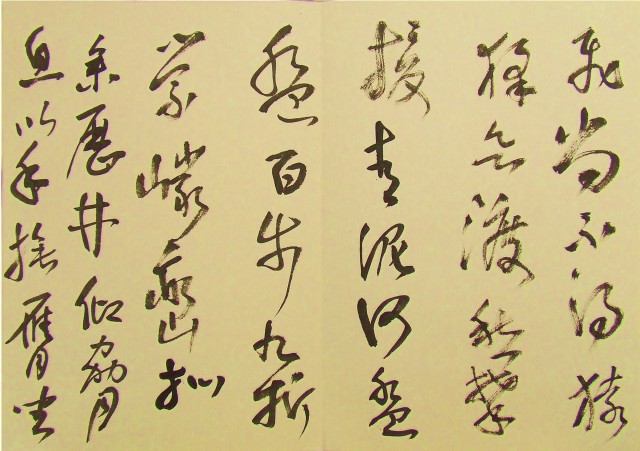 飛尚不得猿
猱欲渡愁攀
援青泥何盤
盤百步九折
縈巖巒捫
參歷井仰脅
息以手撫膺坐